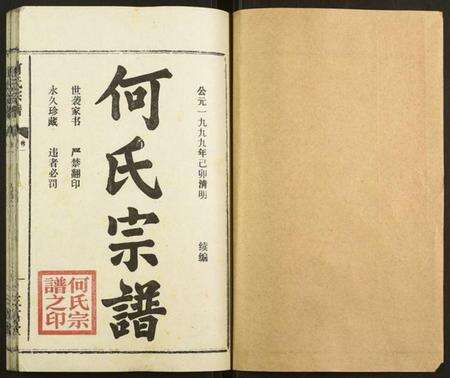 公元一九九九年己卯清明 续编
何氏宗譜
世袭家书 严禁翻印
永久珍藏 违者必罚
何氏宗譜之印